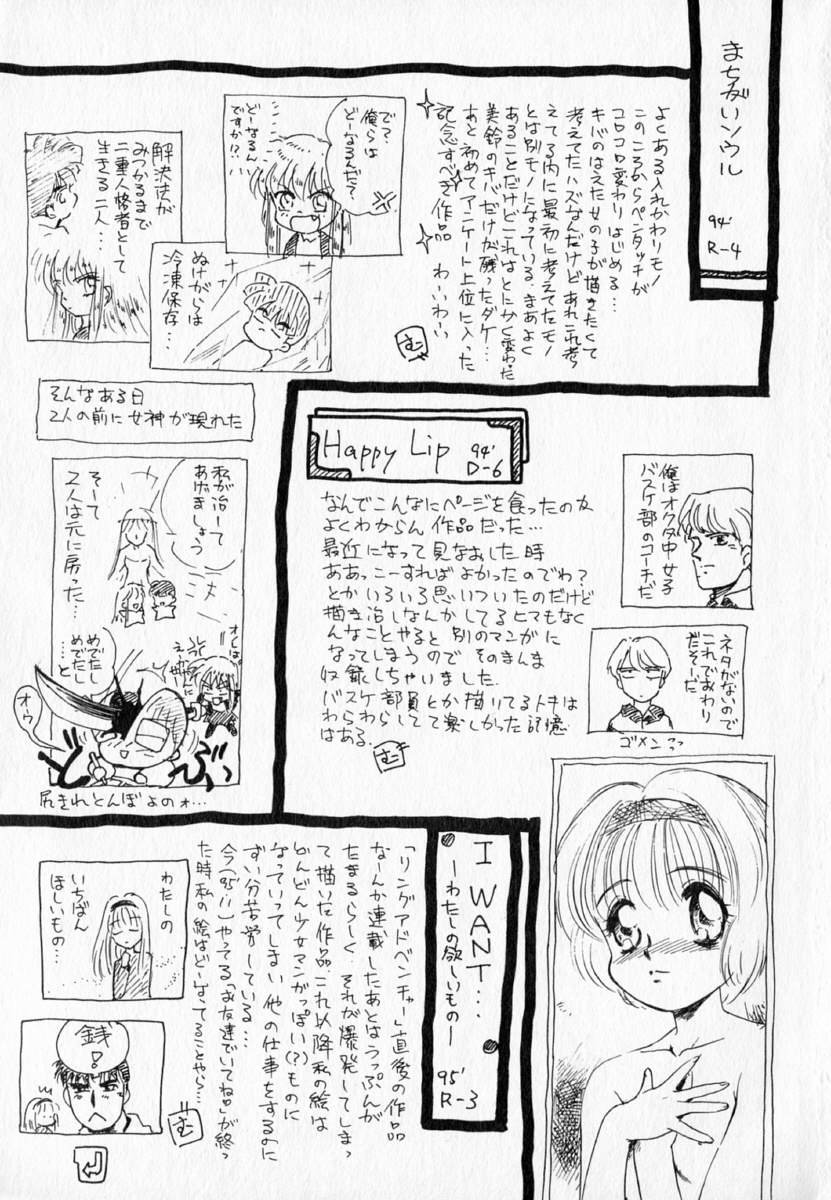 まちがいソウル
94'
R-4
よくある入れかわりモノ
このころからペンタッチが
コロコロ変わりはじめる…
キバのはえた女の子が描きたくて
考えてたハズなんだけどあれこれ考
えてる内に最初に考えてたモノ
とは別モノになっている、まあよく
あることだけどこれはとにかく変わった
美鈴のキバだけが残ったダケ…
あと初めてアンケート上位に入った
記念すべき作品 わーいわーい
む
で?
俺らは
どーなるんだ?
どーなるん
ですか!?
ぬけがらは
冷凍保存…
解決法が
みつかるまで
二重人格者として
生きる二人…
そんなある日
2人の前に女神が現れた
私が治して
あげましょう
そして
2人は元に戻った…
めでたし
めでたし
…と
オウ
尻きれとんぼよのォ…
Happy Lip
94'
D-6
なんでこんなにページを食ったのか
よくわからん作品だった…
最近になって見なおした時
ああっこーすればよかったのでわ?
とかいろいろ思いついたのだけど
描き治しなんかしてるヒマもなく
んなことやると別のマンガに
なってしまうのでそのまんま
収録しちゃいました.
バスケ部員とか描いてるトキは
わらわらしてて楽しかった記憶
はある.
む
俺はオクタ中女子
バスケ部のコーチだ
ネタがないので
これでおわり
だそーだ
ゴメン
I WANT…
―わたしの欲しいもの―
95'
R-3
「リングアドベンチャー」直後の作品
なーんか連載したあとはうっぷんが
たまるらしく、それが爆発してしまっ
て描いた作品.これ以降私の絵は
どんどん少女マンガっぽい(?)ものに
なっていってしまい他の仕事をするのに
ずい分苦労している…
今(95'11)やってる「お友達でいてね」が終っ
た時私の絵はどーなってることやら…
む
わたしの
いちばん
ほしいもの…
銭!